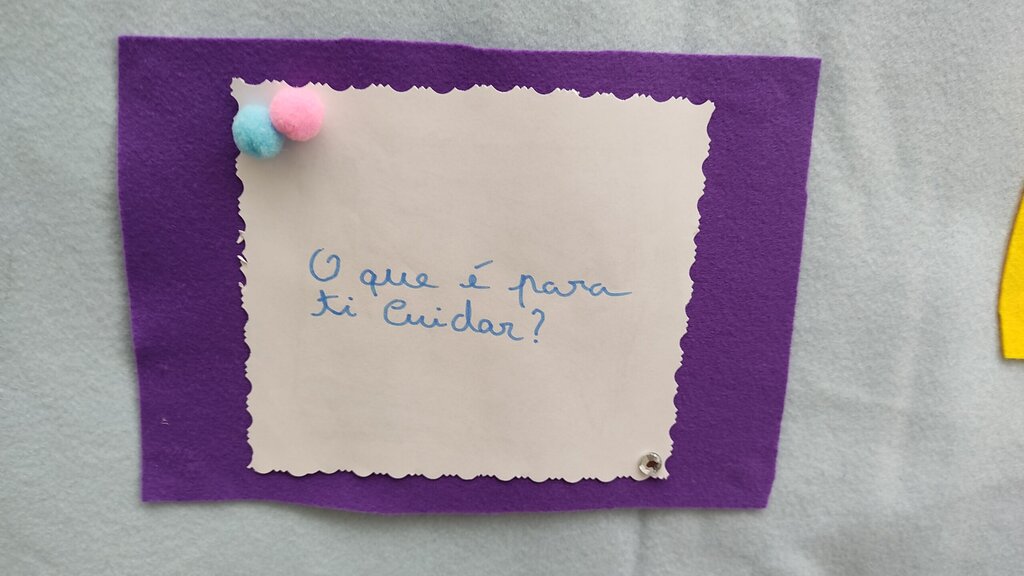 O que é para
ti Cuidar?